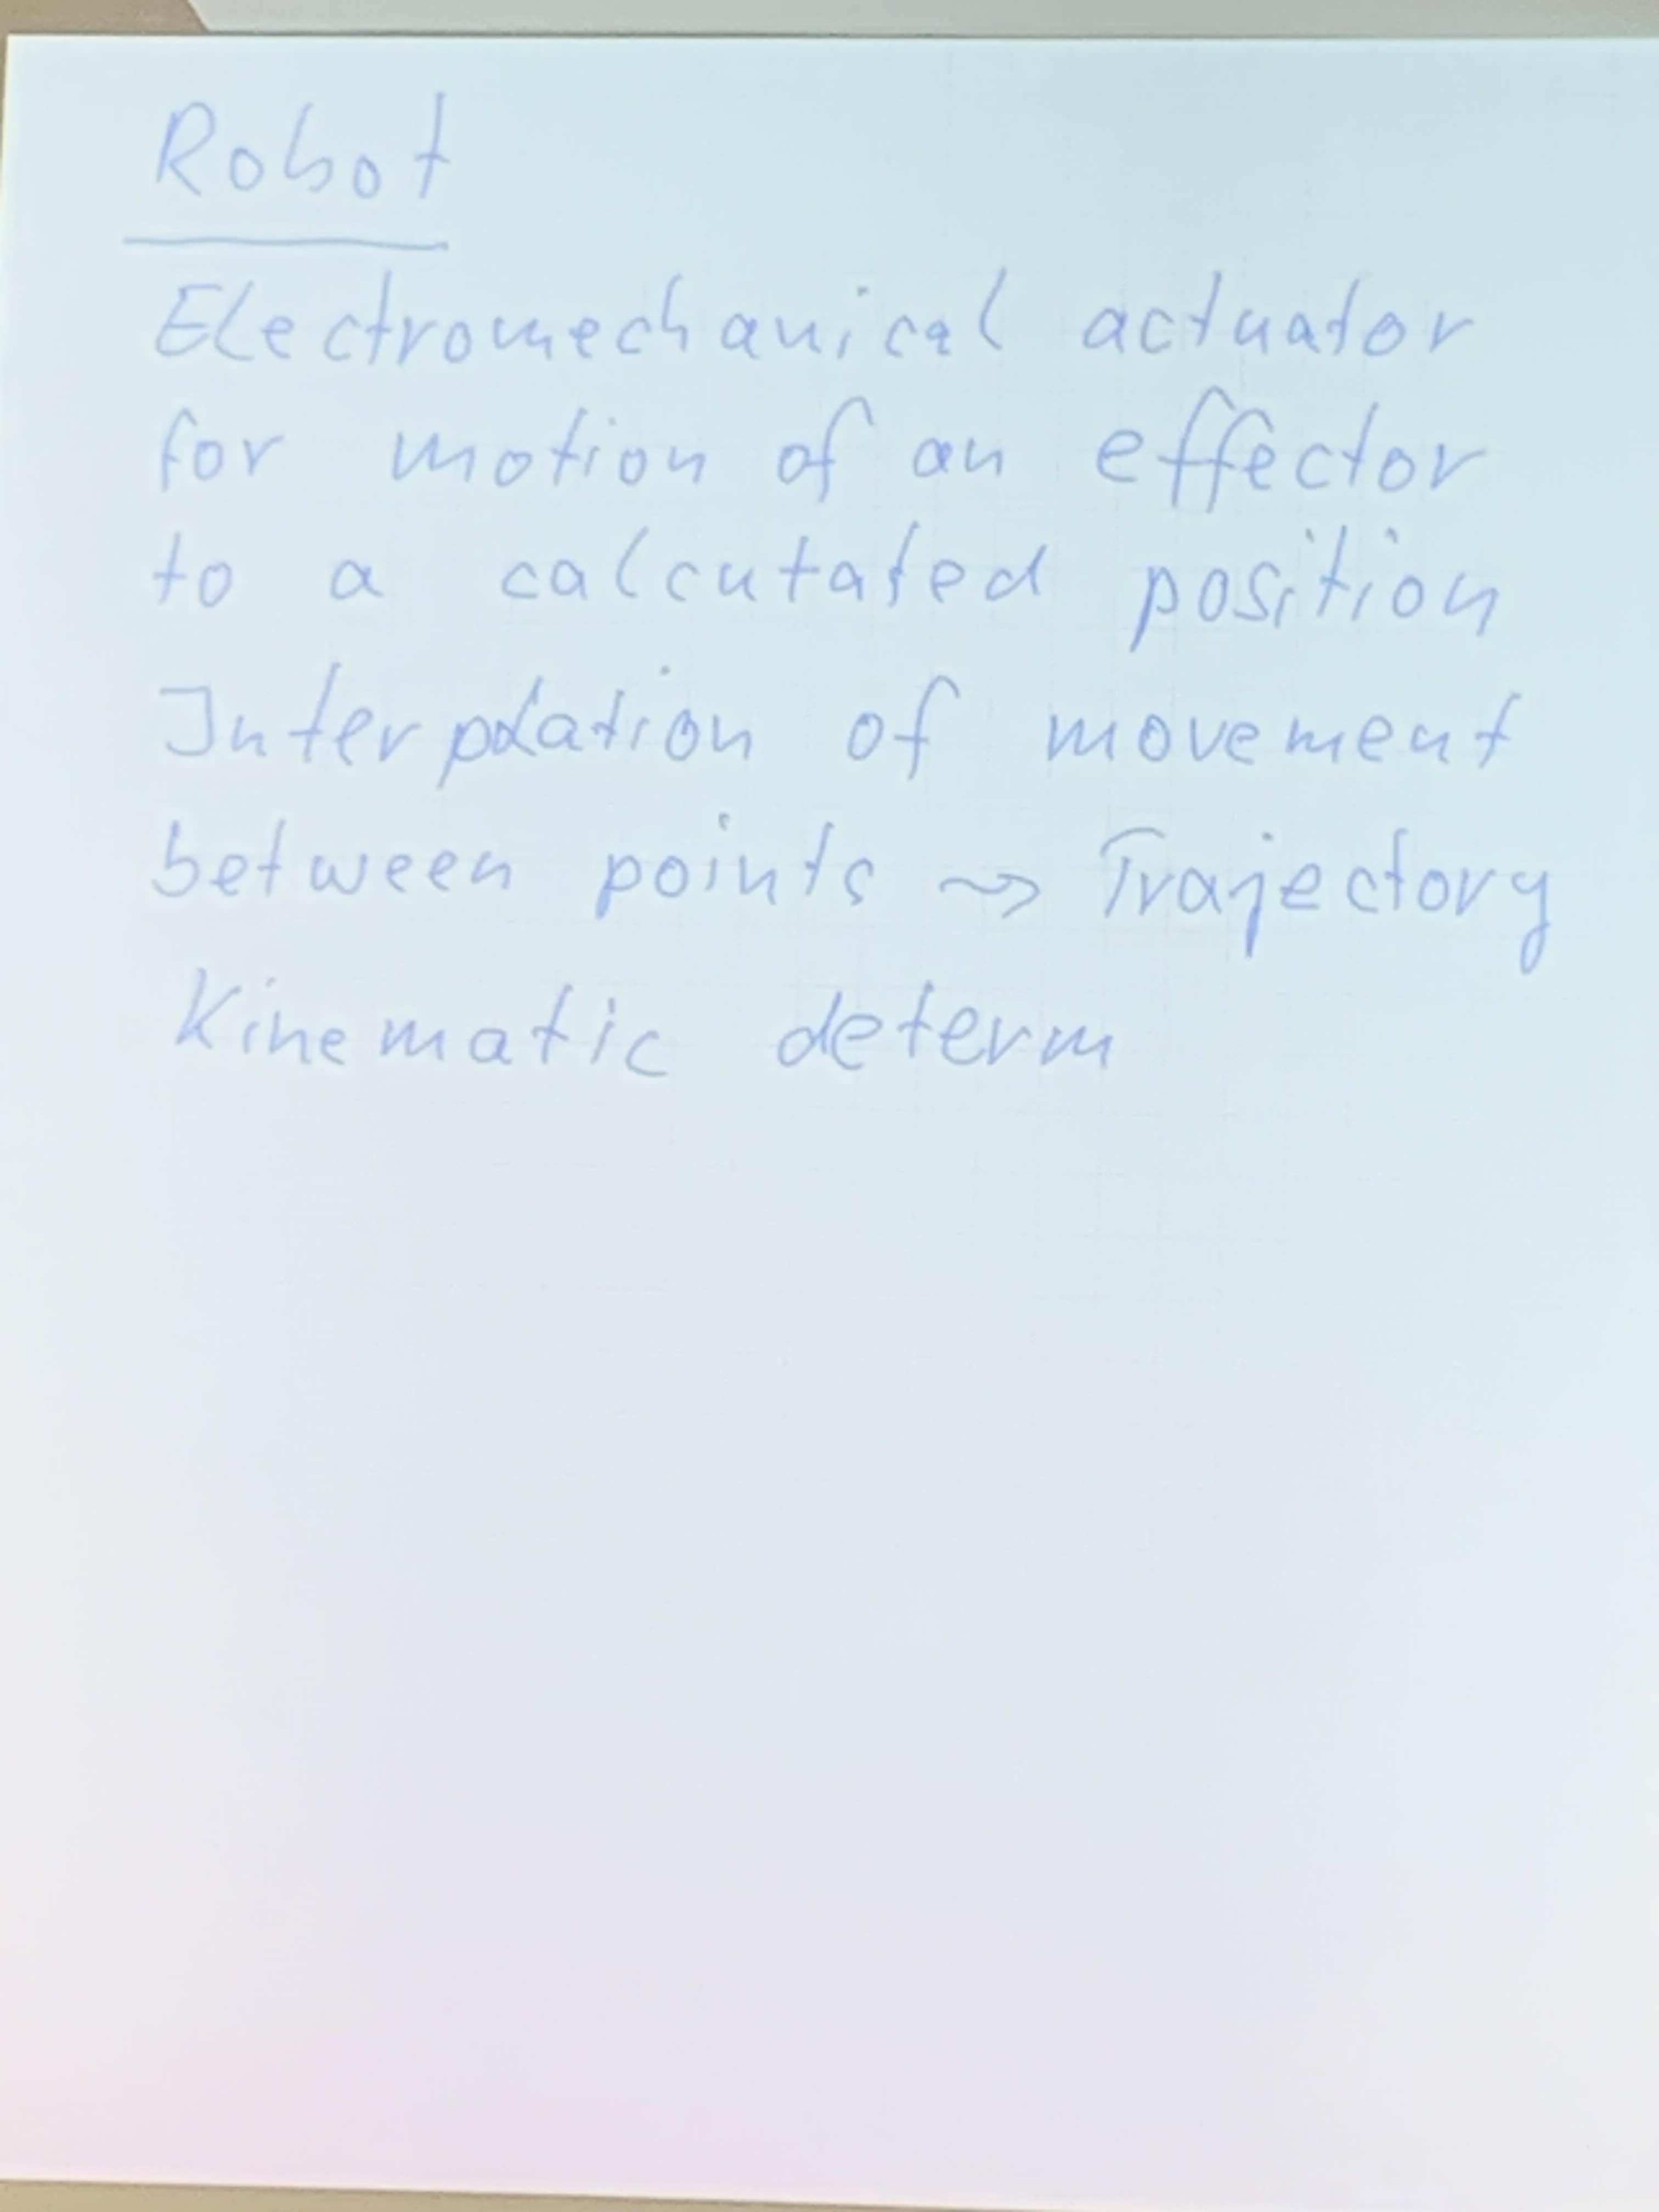 Robot
Electromechanical actuator
for motion of an effector
to a calcutated position
Interpolation of movement
between points ⇝ Trajectory
Kinematic determ